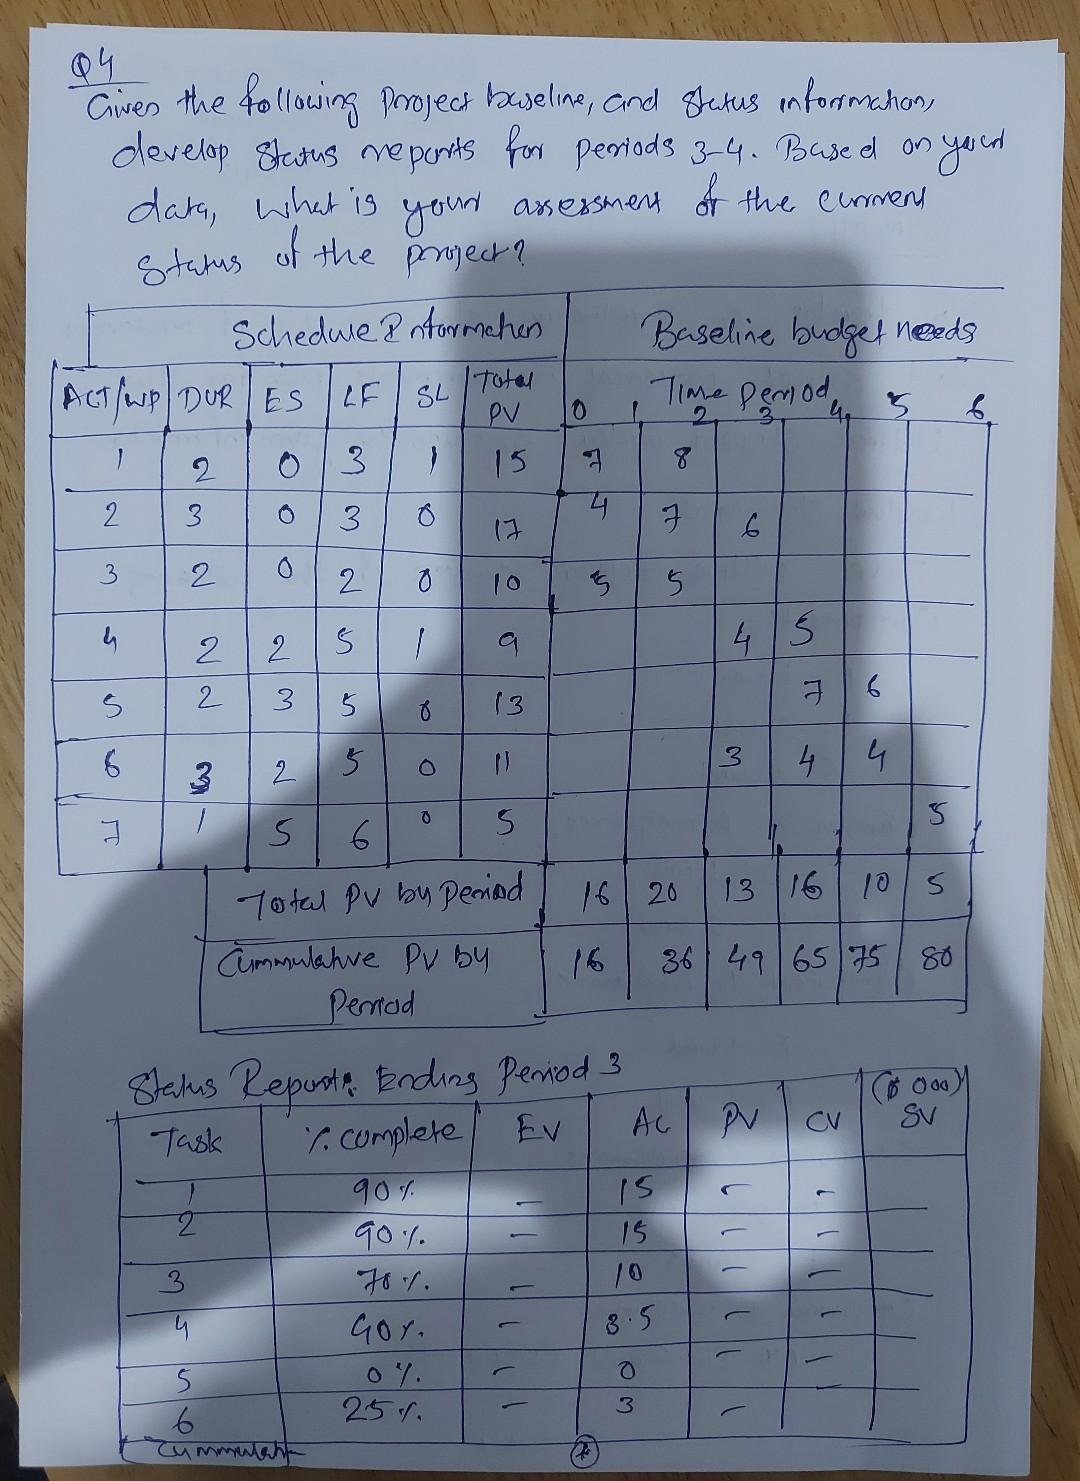 Q4
Given the following project baseline, and status information,
develop status reports for periods 3-4. Based on your
data, what is your assessment of the current
status of the project?
Schedule Information Baseline budget needs
ACT/WP DUR ES LF SL Total PV Time Period
0 1 2 3 4 5 6
1 2 0 3 1 15 7 8
2 3 0 3 0 17 4 7 6
3 2 0 2 0 10 5 5
4 2 2 5 1 9 4 5
5 2 3 5 0 13 7 6
6 3 2 5 0 11 3 4 4
7 1 5 6 0 5 5
Total PV by Period 16 20 13 16 10 5
Cummulative PV by 16 36 49 65 75 80
Period
Status Report: Ending Period 3
($ 000)
Task % complete EV AC PV CV SV
1 90% - 15 - -
2 90% - 15 - -
3 70% - 10 - -
4 - - -
5 0% - 0 - -
6 25% - 3 -